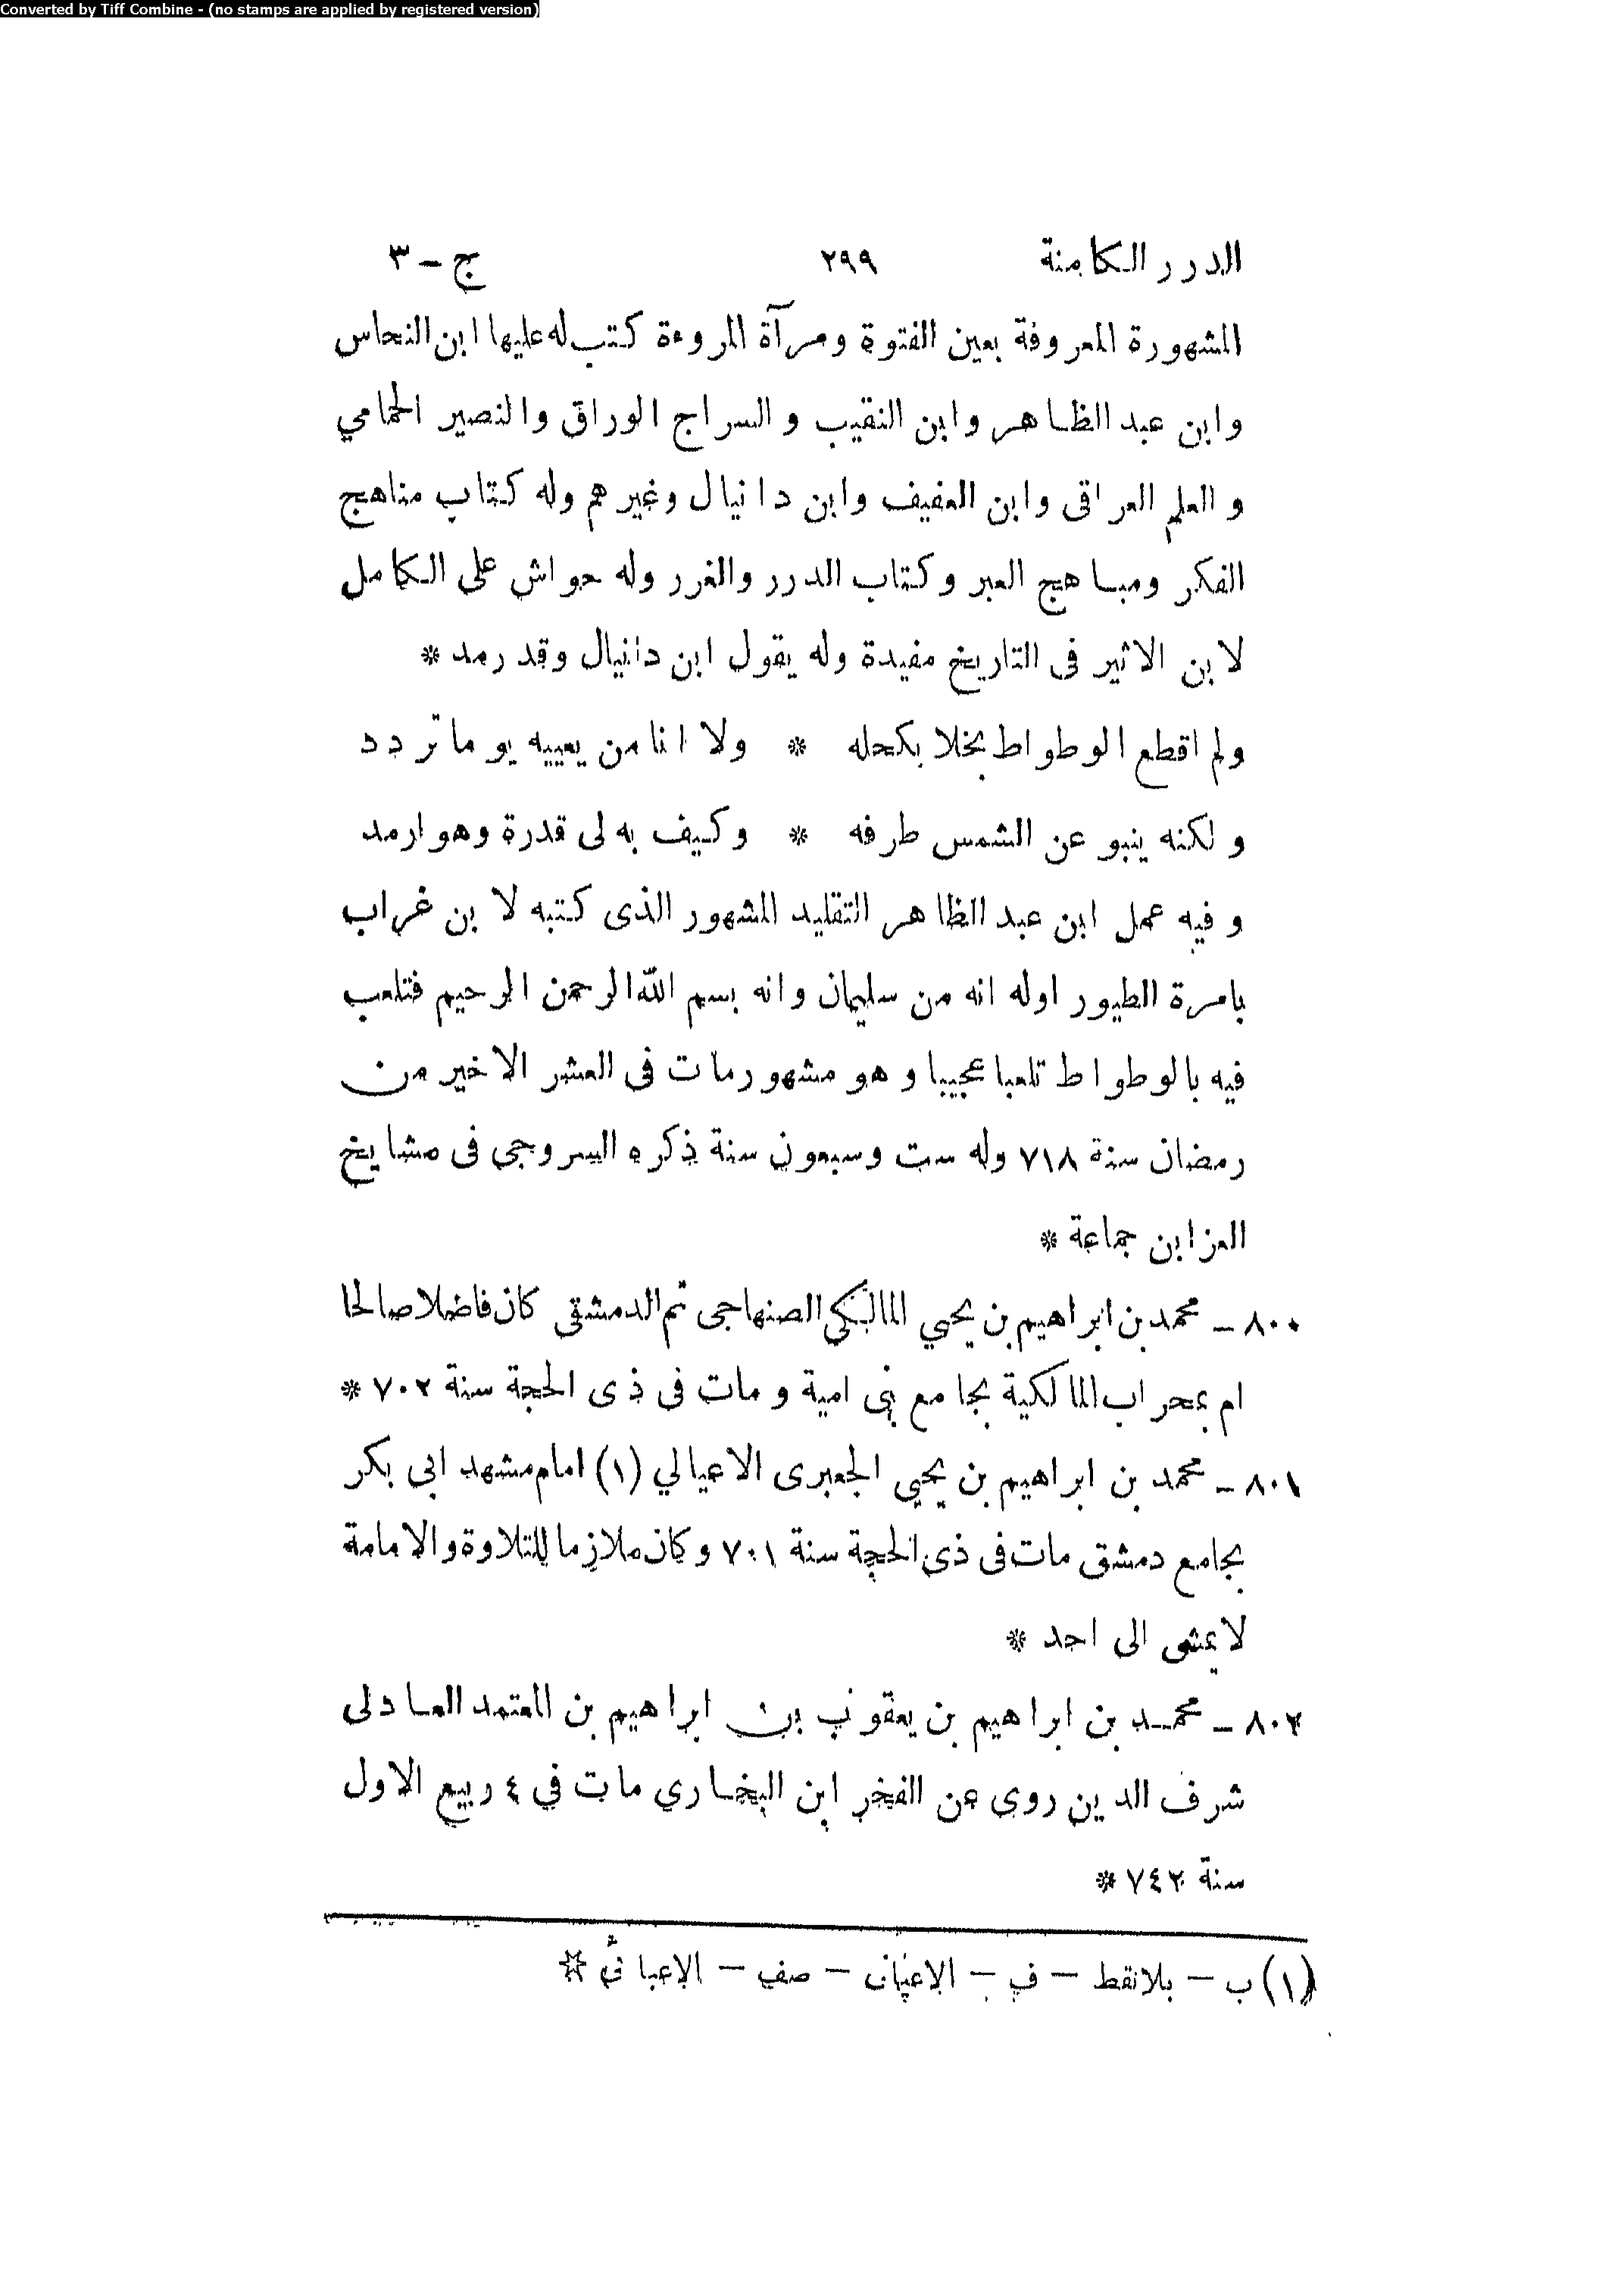 Converted by Tiff Combine - (no stamps are applied by registered version)
الدرر الكامنة ٢٩٩ ج - ٣
المشهورة المعروفة بعين الفتوة ومرآة المروءة كتب له عليها ابن النحاس
وابن عبد الظاهر وابن النقيب والسراج الوراق والنصير الحمامي
والعلم العراقى وابن العفيف وابن دانيال وغيرهم وله كتاب مناهج
الفكر ومباهج العبر وكتاب الدرر والغرر وله حواش على الكامل
لابن الاثير فى التاريخ مفيدة وله يقول ابن دانيال وقد رمد *
ولم اقطع الوطواط بخلا بكحله * ولا انا من يعييه يوما تردد
ولكنه ينبو عن الشمس طرفه * وكيف به لى قدرة وهو ارمد
وفيه عمل ابن عبد الظاهر التقليد المشهور الذى كتبه لابن غراب
بامرة الطيور اوله انه من سليمان وانه بسم الله الرحمن الرحيم فتلعب
فيه بالوطواط تلعبا عجيبا وهو مشهور مات فى العشر الاخير من
رمضان سنة ٧١٨ وله ست وسبعون سنة ذكره السروجى فى مشايخ
العز ابن جماعة *
٨٠٠ - محمد بن ابراهيم بن يحيي المالكي الصنهاجى ثم الدمشقى كان فاضلا صالحا
ام بمحراب المالكية بجامع بنى امية ومات فى ذى الحجة سنة ٧٠٢ *
٨٠١ - محمد بن ابراهيم بن يحيي الجعبرى الاعيالي (١) امام مشهد ابى بكر
بجامع دمشق مات فى ذى الحجة سنة ٧٠١ وكان ملازما للتلاوة والامامة
لا يمشى الى احد *
٨٠٢ - محمد بن ابراهيم بن يعقوب بن ابراهيم بن المعتمد العادلى
شرف الدين روى عن الفخر ابن البخاري مات في ٤ ربيع الاول
سنة ٧٤٢ *
(١) ب - بلا نقط - ف - الاعيان - صف -